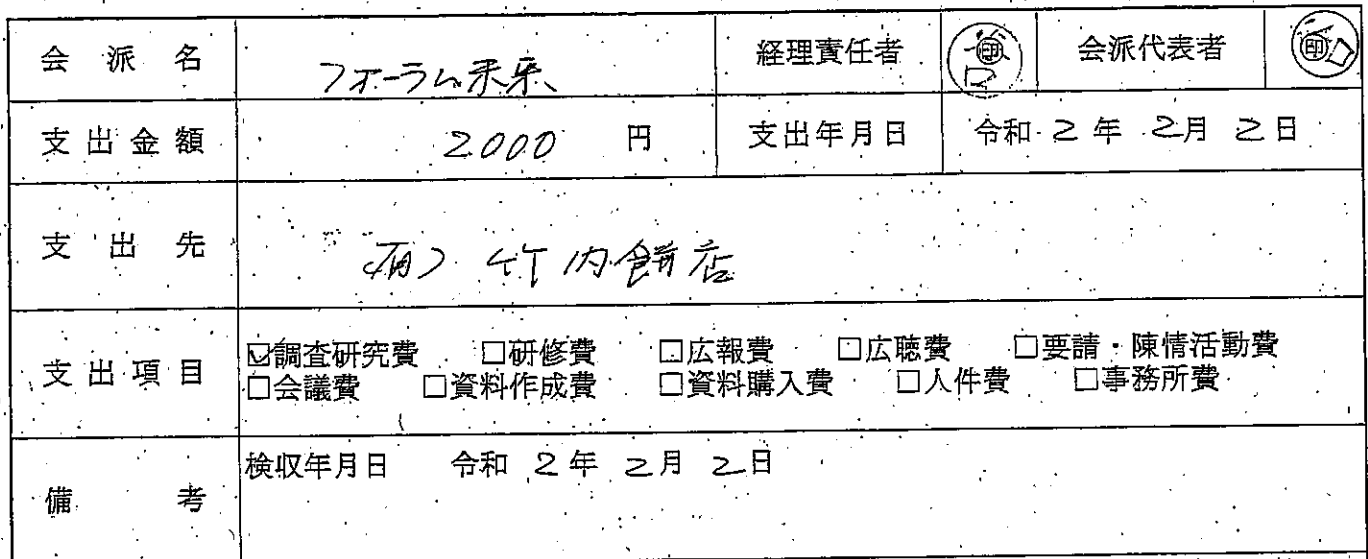 会派名 フォーラム未来 経理責任者 印 会派代表者 印
支出金額 2000 円 支出年月日 令和 2 年 2月 2日
支出先 (有) 竹内餅店
支出項目 ☑調査研究費 □研修費 □広報費 □広聴費 □要請・陳情活動費
□会議費 □資料作成費 □資料購入費 □人件費 □事務所費
備考 検収年月日 令和 2年 2月 2日